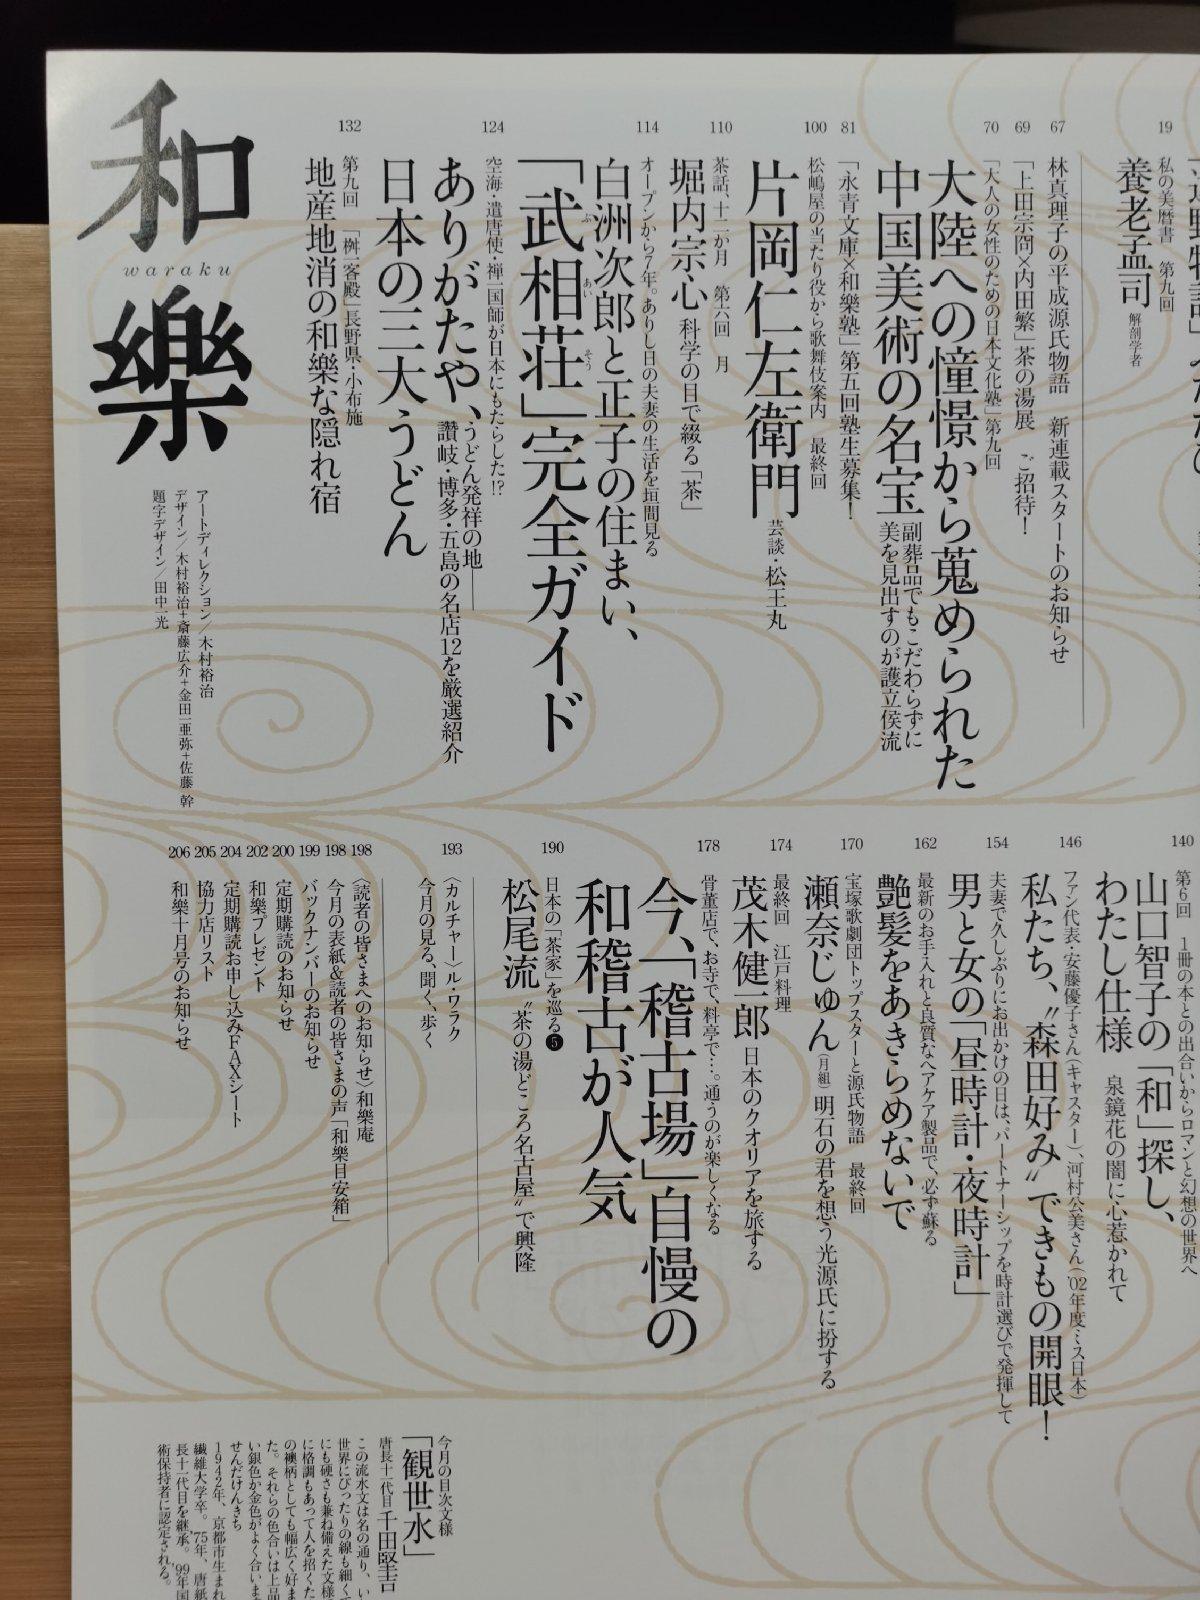 19
私の美暦書 第九回
養老孟司 解剖学者
67
林真理子の平成源氏物語 新連載スタートのお知らせ
69
「上田宗箇×内田繁」茶の湯展 ご招待！
70
「大人の女性のための日本文化塾」第九回
大陸への憧憬から蒐められた
中国美術の名宝
副葬品でもこだわらずに
美を見出すのが護立侯流
81
「永青文庫×和樂塾」第五回塾生募集！
100
松嶋屋の当たり役から歌舞伎案内 最終回
片岡仁左衛門 芸談・松王丸
110
茶話、十二か月 第六回 月
堀内宗心 科学の目で綴る「茶」
114
オープンから7年。ありし日の夫妻の生活を垣間見る
白洲次郎と正子の住まい、
「武相荘」完全ガイド
ぶあいそう
124
空海・遣唐使・禅一国師が日本にもたらした!?
ありがたや、
日本の三大うどん
うどん発祥の地――
讃岐・博多・五島の名店12を厳選紹介
132
第九回 「桝一客殿」長野県・小布施
地産地消の和樂な隠れ宿
和樂
waraku
アートディレクション／木村裕治
デザイン／木村裕治+斎藤広介+金田一亜弥+佐藤 幹
題字デザイン／田中一光
140
第6回 1冊の本との出合いからロマンと幻想の世界へ
山口智子の「和」探し、
わたし仕様 泉鏡花の闇に心惹かれて
146
ファン代表・安藤優子さん（キャスター）、河村公美さん（'02年度ミス日本）
私たち、〝森田好み〟できもの開眼！
154
夫妻で久しぶりにお出かけの日は、パートナーシップを時計選びで発揮して
男と女の「昼時計・夜時計」
162
最新のお手入れと良質なヘアケア製品で、必ず蘇る
艶髪をあきらめないで
170
宝塚歌劇団トップスターと源氏物語 最終回
瀬奈じゅん（月組）明石の君を想う光源氏に扮する
174
最終回 江戸料理
茂木健一郎 日本のクオリアを旅する
178
骨董店で、お寺で、料亭で…。通うのが楽しくなる
今、「稽古場」自慢の
和稽古が人気
190
日本の「茶家」を巡る❺
松尾流 〝茶の湯どころ名古屋〟で興隆
193
〈カルチャー〉ル・ワラク
今月の見る、聞く、歩く
198
〈読者の皆さまへのお知らせ〉和樂庵
198
今月の表紙&読者の皆さまの声「和樂目安箱」
199
バックナンバーのお知らせ
200
定期購読のお知らせ
202
和樂プレゼント
204
定期購読お申し込みFAXシート
205
協力店リスト
206
和樂十月号のお知らせ
今月の目次文様
「観世水」
唐長十一代目 千田堅吉
この流水文は名の通り、い
世界にぴったりの線も細くて
にも硬さも兼ね備えた文様
に格調もあって人を招くた
の襖柄としても幅広く好ま
た。それらの色合いは上品
い銀色か金色がよく合いま
せんだけんきち
1942年、京都市生まれ
繊維大学卒。'75年、唐紙
長十一代目を継承。'99年国
術保持者に認定される。